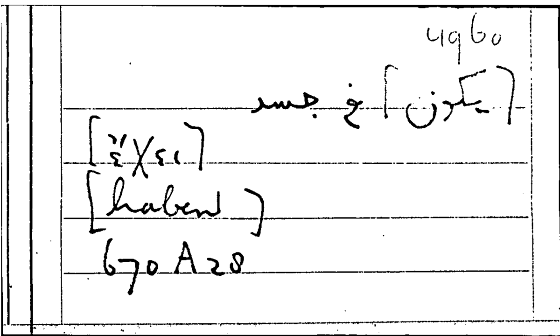 4960
[يكون] في جسد
[ἔχει]
[haben]
670 A28